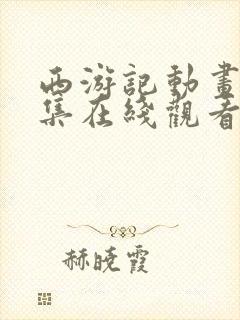 西游記動畫
集在綫觀看
赫曉霞